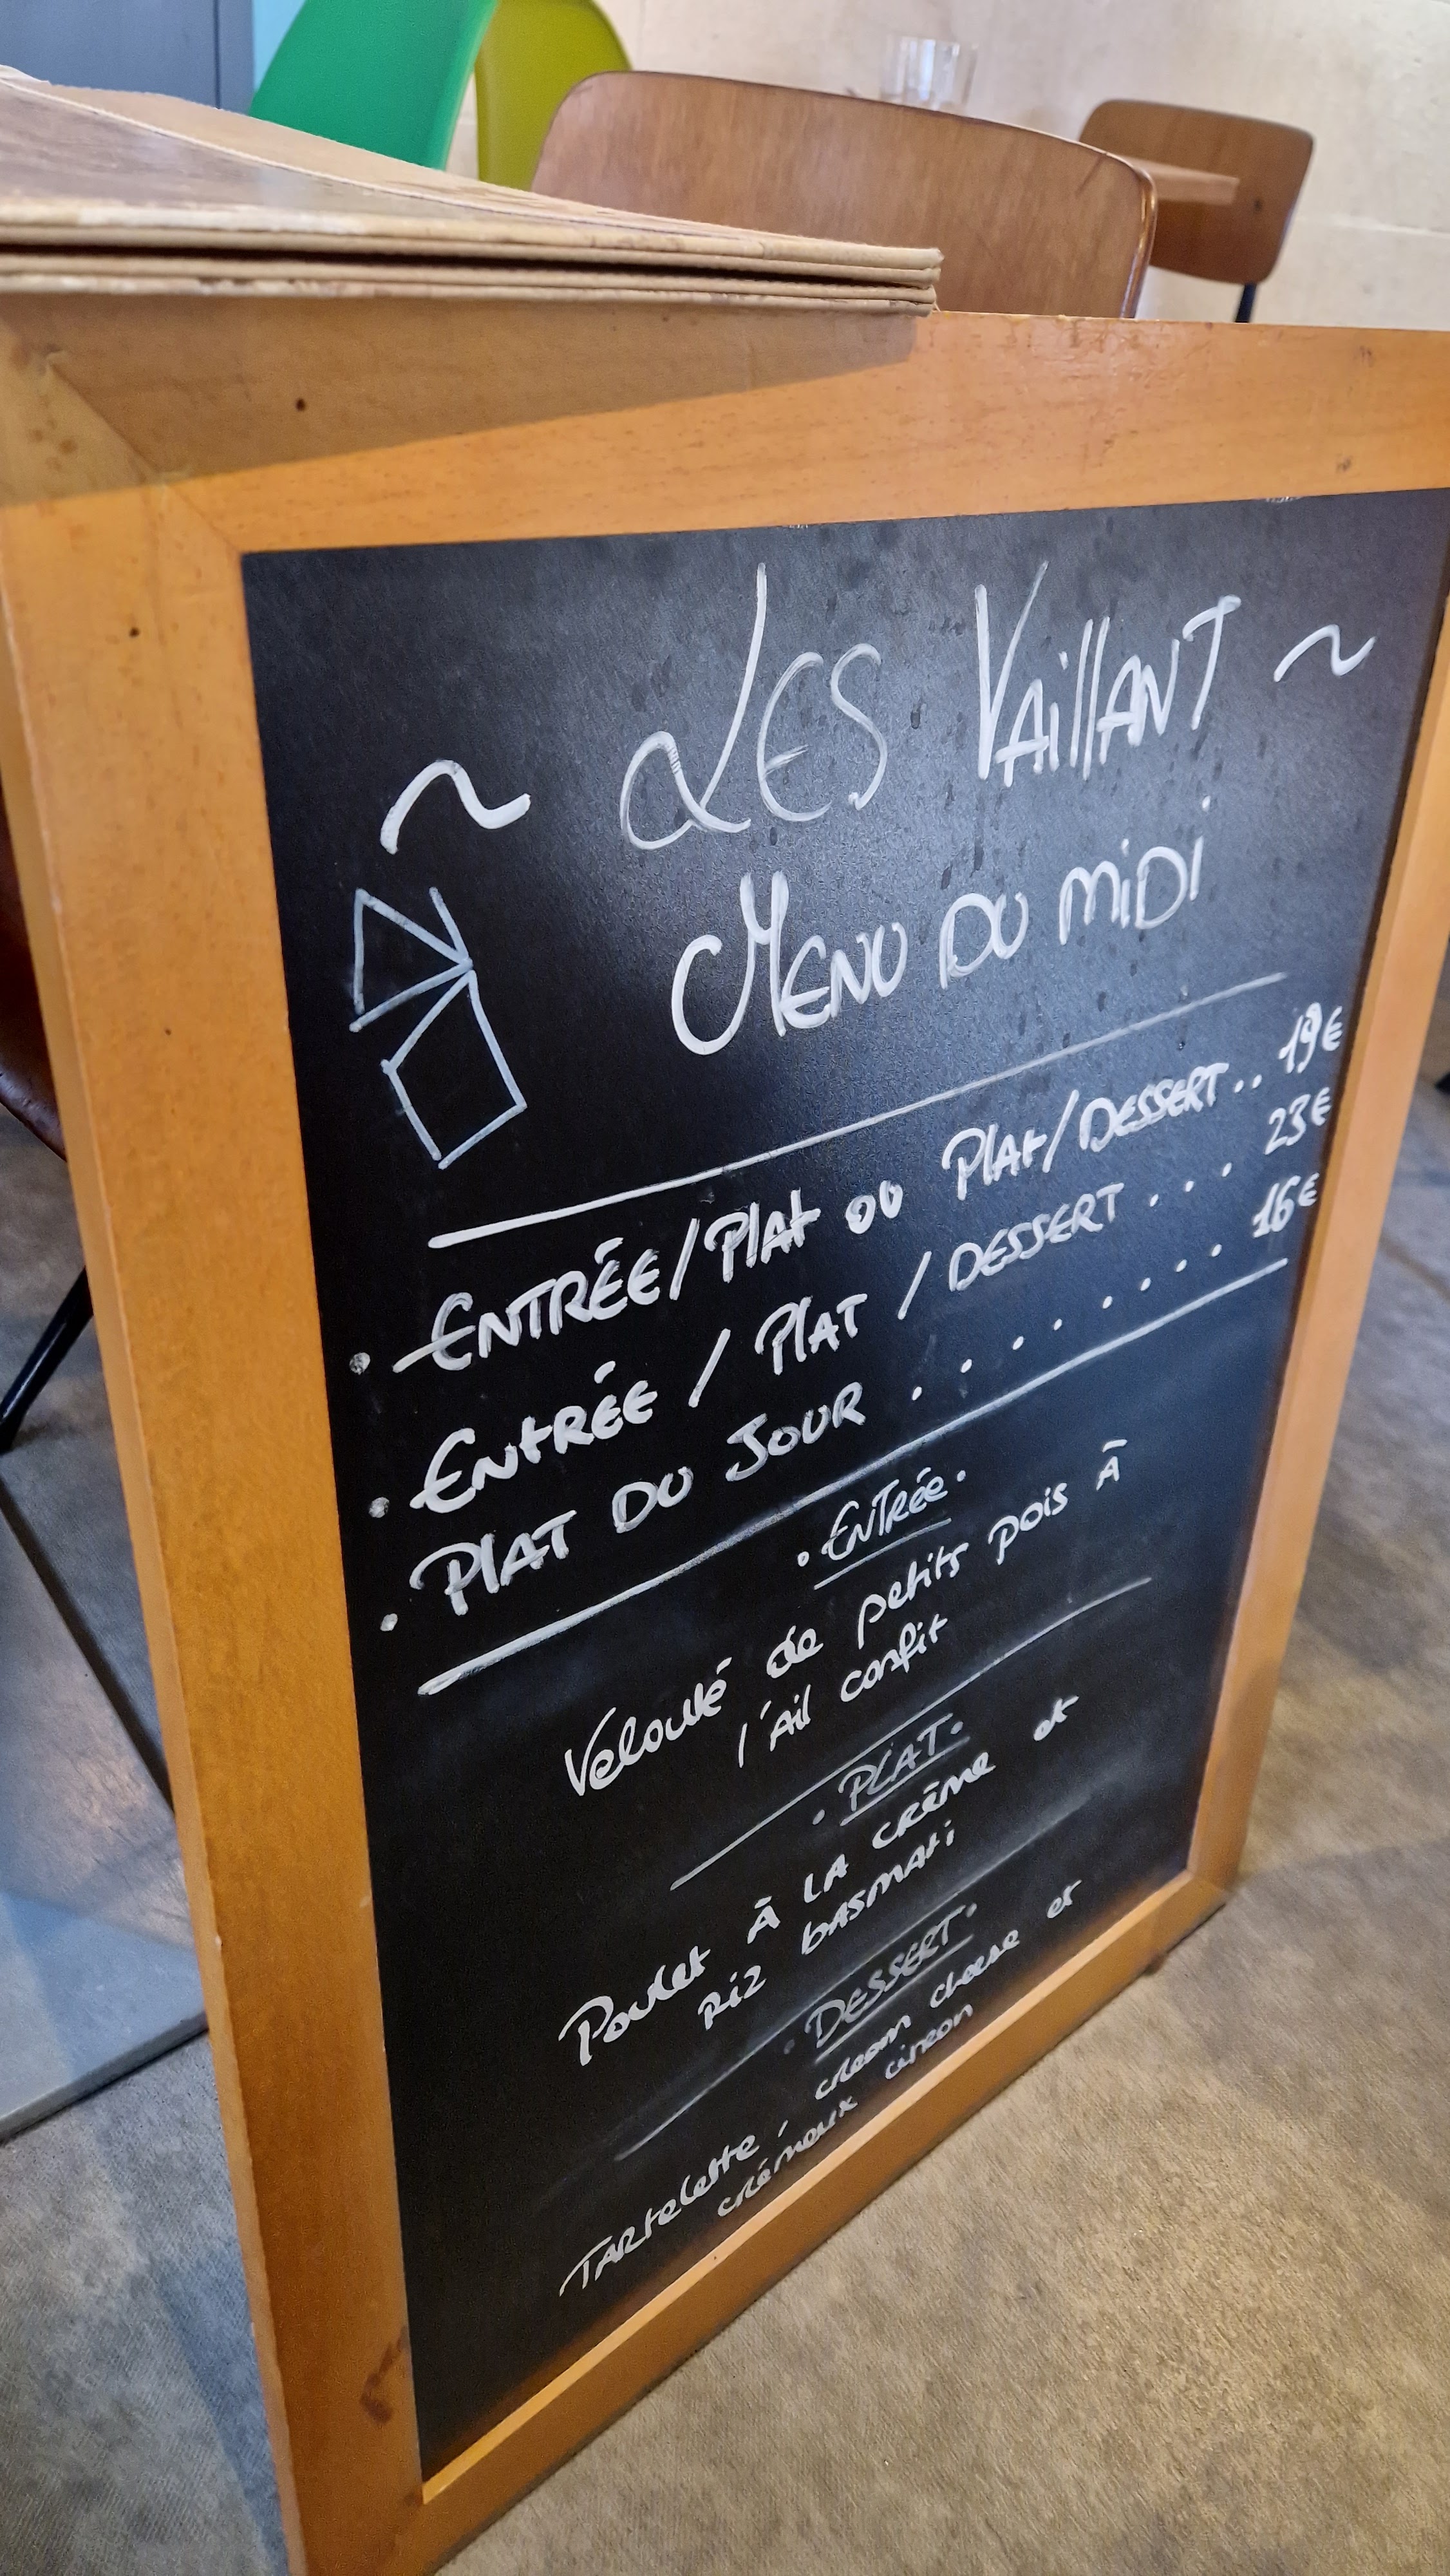 ~ LES VAillANT ~
MENU DU MiDi
· ENTRÉE/PlAt OU PlAt/DESSERT .. 19€
· ENtRÉE / PlAT / DESSERT . . . 23€
· PlAT DU JOUR . . . . . . . . 16€
· ENTRée ·
Velouté de petits pois À
l'Ail confit
· PLAT ·
Poulet À LA crème et
Riz basmati
· DESSERT ·
TARtelette, cream cheese et
crémeux citron